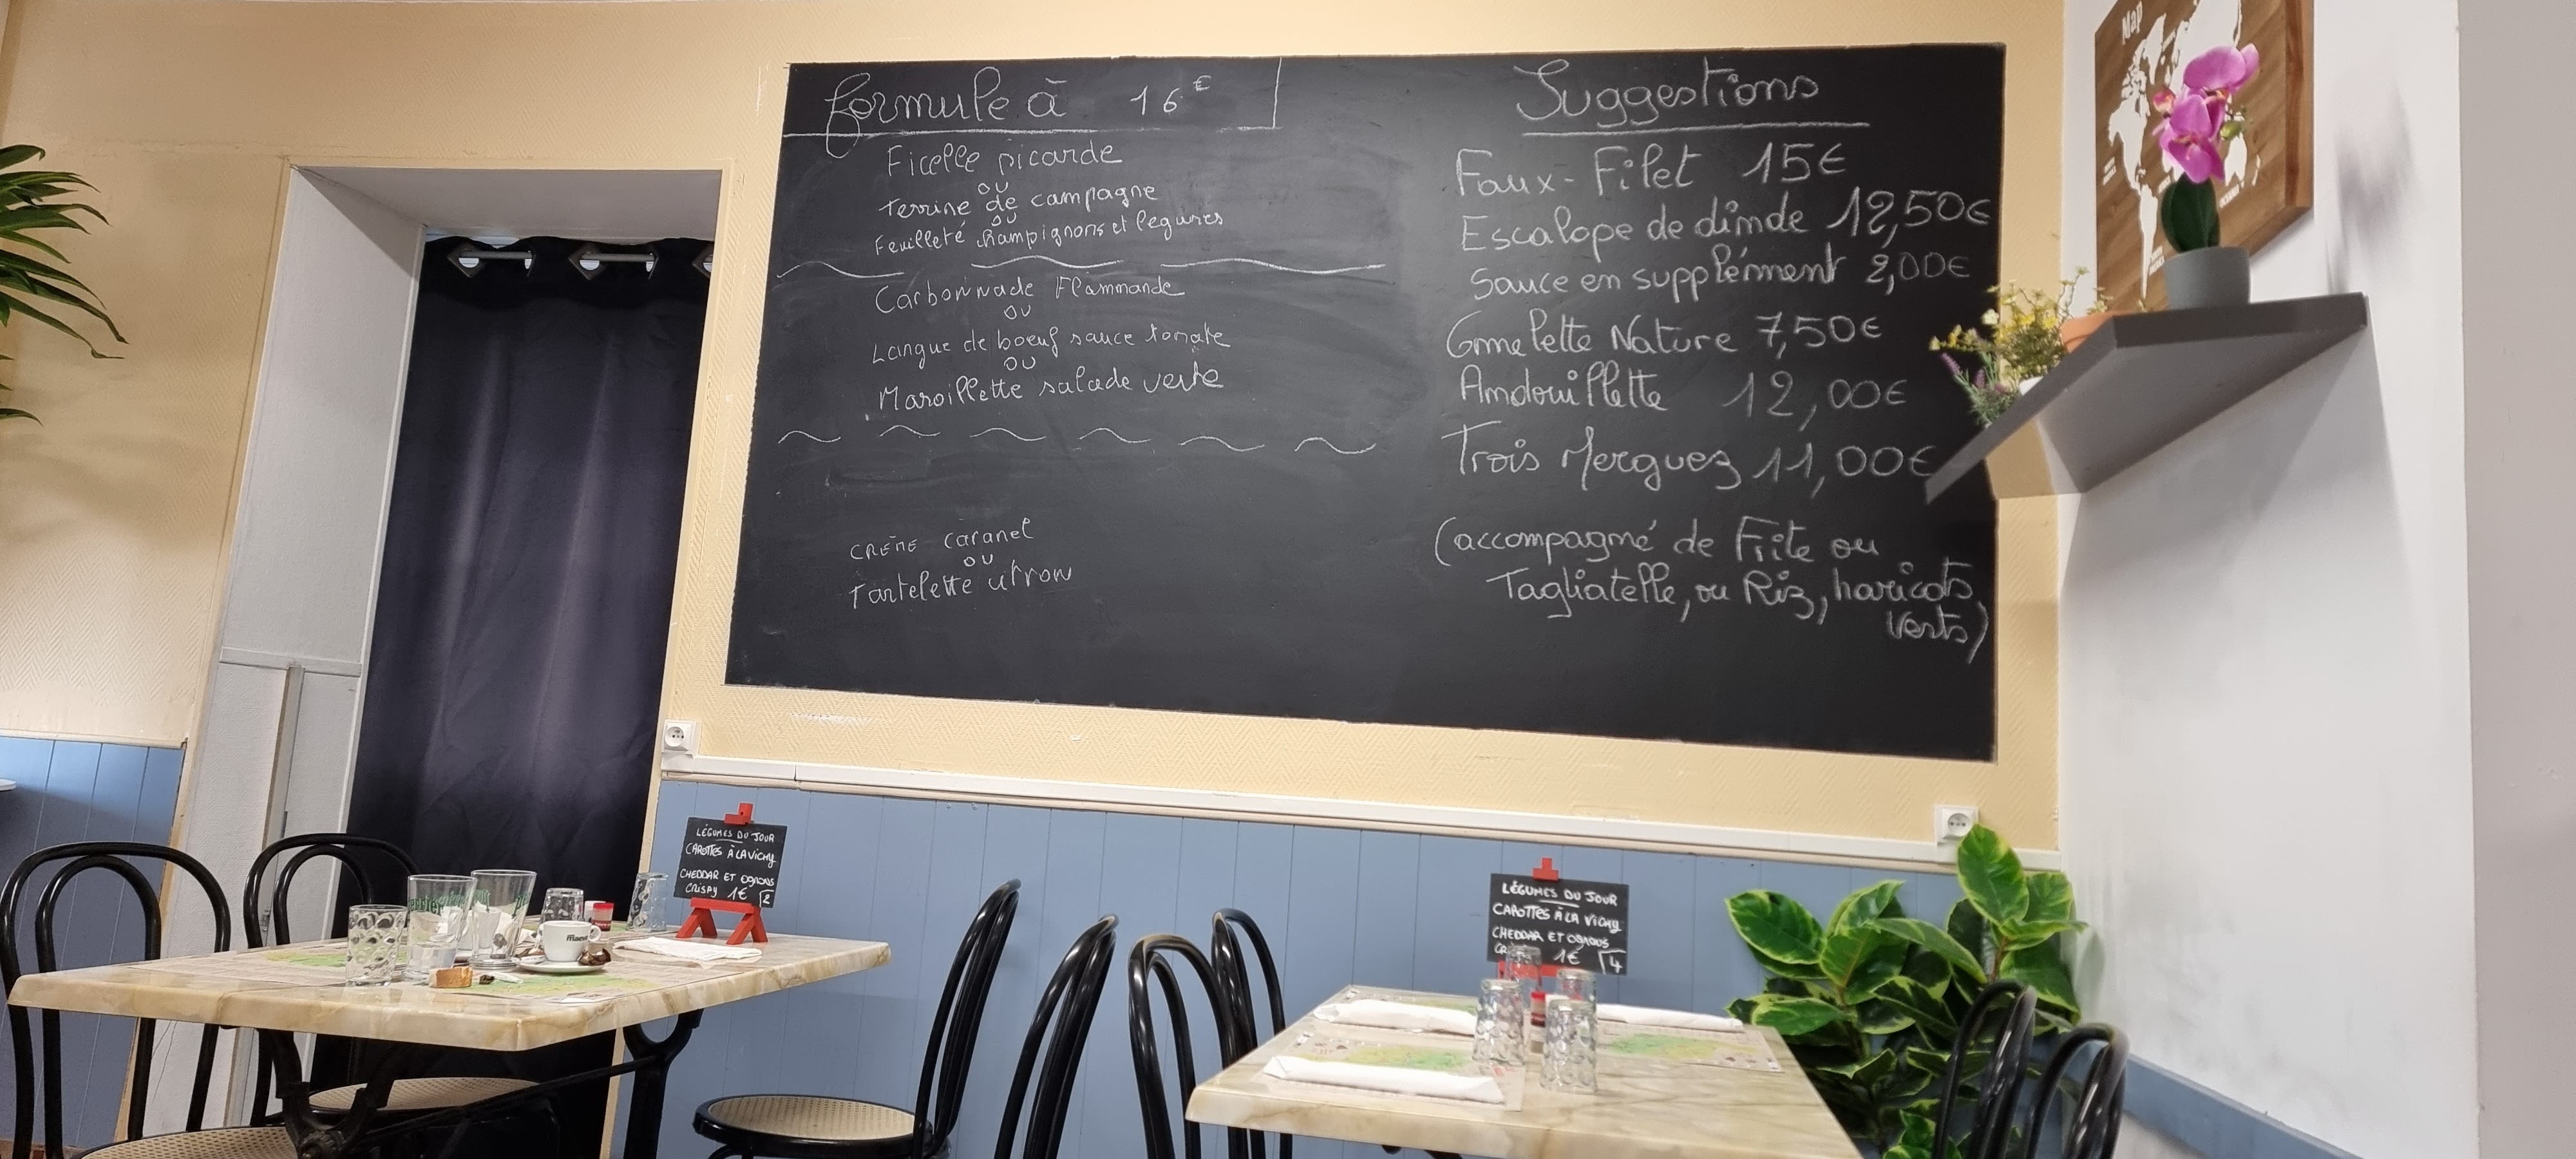 formule à 16€
Ficelle picarde
ou
Terrine de campagne
ou
Feuilleté champignons et légumes
Carbonnade Flammande
ou
Langue de boeuf sauce tomate
ou
Maroillette salade verte
CRÈME caramel
ou
Tartelette citron
Suggestions
Faux-Filet 15€
Escalope de dinde 12,50€
Sauce en supplément 2,00€
Omelette Nature 7,50€
Andouillette 12,00€
Trois Merguez 11,00€
(accompagné de Frite ou
Tagliatelle, ou Riz, haricots
verts)
Map
LÉGUMES DU JOUR
CAROTTES À LA VICHY
CHEDDAR ET OGNONS
CRISPY 1€ 2
LÉGUMES DU JOUR
CAROTTES À LA VICHY
CHEDDAR ET OGNONS
1€ 4